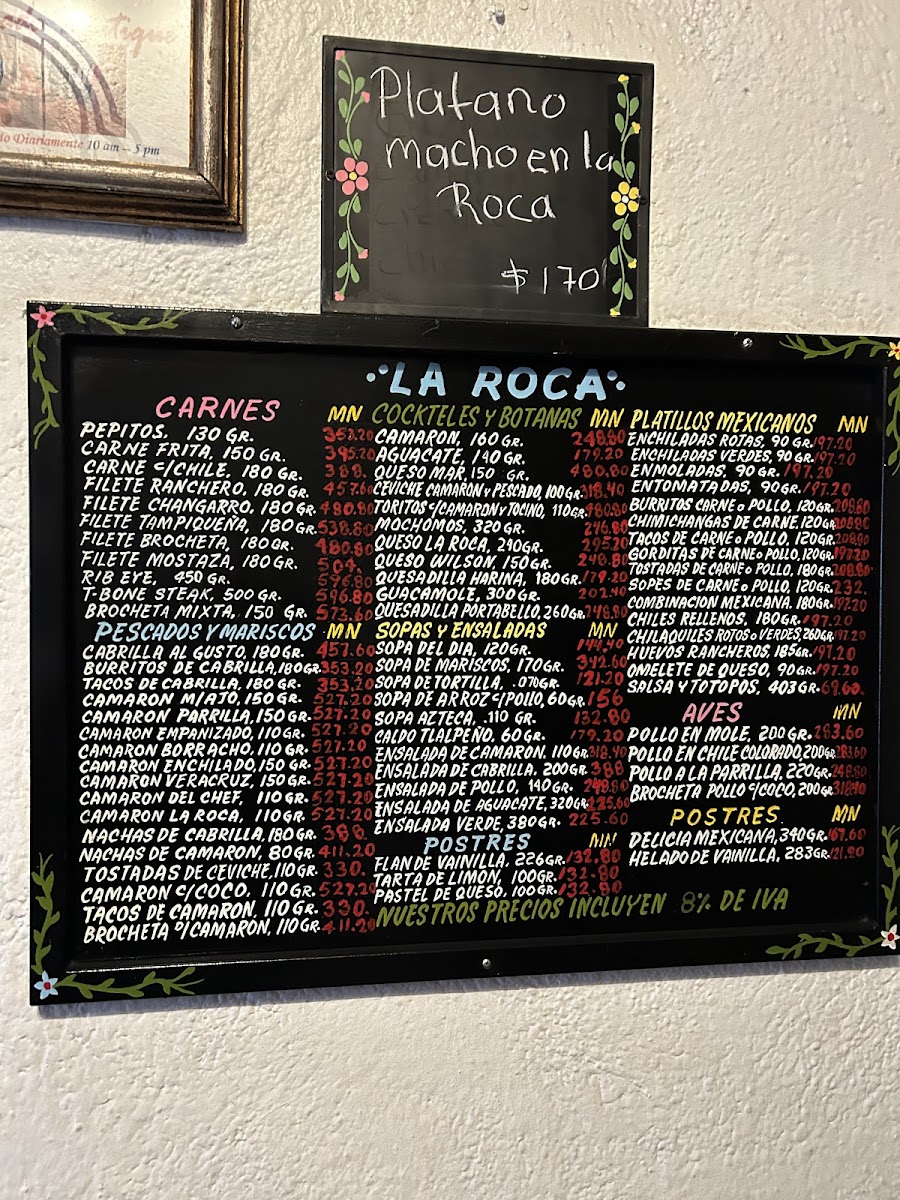 do Diariamente 10 am - 5 pm
Platano
macho en la
Roca
$170
LA ROCA
CARNES MN
PEPITOS, 130 GR. 353.20
CARNE FRITA, 150 GR. 395.20
CARNE C/CHILE, 180 GR. 388.
FILETE RANCHERO, 180 GR. 457.60
FILETE CHANGARRO, 180 GR. 480.80
FILETE TAMPIQUEÑA, 180 GR. 538.80
FILETE BROCHETA, 180 GR. 480.80
FILETE MOSTAZA, 180 GR. 504.
RIB EYE, 450 GR. 596.80
T-BONE STEAK, 500 GR. 596.80
BROCHETA MIXTA, 150 GR. 573.60
PESCADOS Y MARISCOS MN
CABRILLA AL GUSTO, 180 GR. 457.60
BURRITOS DE CABRILLA, 180 GR. 353.20
TACOS DE CABRILLA, 180 GR. 353.20
CAMARON M/AJO, 150 GR. 527.20
CAMARON PARRILLA, 150 GR. 527.20
CAMARON EMPANIZADO, 110 GR. 527.20
CAMARON BORRACHO, 110 GR. 527.20
CAMARON ENCHILADO, 150 GR. 527.20
CAMARON VERACRUZ, 150 GR. 527.20
CAMARON DEL CHEF, 110 GR. 527.20
CAMARON LA ROCA, 110 GR. 527.20
NACHAS DE CABRILLA, 180 GR. 388.
NACHAS DE CAMARON, 80 GR. 411.20
TOSTADAS DE CEVICHE, 110 GR. 330.
CAMARON C/COCO, 110 GR. 527.20
TACOS DE CAMARON, 110 GR. 330.
BROCHETA D/CAMARON, 110 GR. 411.20
COCKTELES Y BOTANAS MN
CAMARON, 160 GR. 248.80
AGUACATE, 140 GR. 179.20
QUESO MAR, 150 GR. 480.80
CEVICHE CAMARON Y PESCADO, 100 GR. 318.40
TORITOS C/CAMARON Y TOCINO, 110 GR. 480.80
MOCHOMOS, 320 GR.
QUESO LA ROCA, 290 GR. 295.20
QUESO WILSON, 150 GR. 248.80
QUESADILLA HARINA, 180 GR. 179.20
GUACAMOLE, 300 GR. 202.40
QUESADILLA PORTABELLO, 260 GR. 248.80
SOPAS Y ENSALADAS MN
SOPA DEL DIA, 120 GR. 144.40
SOPA DE MARISCOS, 170 GR. 342.60
SOPA DE TORTILLA, .070 GR. 121.20
SOPA DE ARROZ C/POLLO, 60 GR. 156
SOPA AZTECA, .110 GR. 132.80
CALDO TLALPEÑO, 60 GR. 179.20
ENSALADA DE CAMARON, 110 GR. 318.40
ENSALADA DE CABRILLA, 200 GR. 388
ENSALADA DE POLLO, 140 GR. 248.80
ENSALADA DE AGUACATE, 320 GR. 225.60
ENSALADA VERDE, 380 GR. 225.60
POSTRES MN
FLAN DE VAINILLA, 226 GR. 132.80
TARTA DE LIMON, 100 GR. 132.80
PASTEL DE QUESO, 100 GR. 132.80
PLATILLOS MEXICANOS MN
ENCHILADAS ROJAS, 90 GR. 197.20
ENCHILADAS VERDES, 90 GR. 197.20
ENMOLADAS, 90 GR. 197.20
ENTOMATADAS, 90 GR. 197.20
BURRITOS CARNE O POLLO, 120 GR. 208.80
CHIMICHANGAS DE CARNE, 120 GR. 208.80
TACOS DE CARNE O POLLO, 120 GR. 208.80
GORDITAS DE CARNE O POLLO, 120 GR. 197.20
TOSTADAS DE CARNE O POLLO, 180 GR. 208.80
SOPES DE CARNE O POLLO, 120 GR. 232.
COMBINACION MEXICANA, 180 GR. 197.20
CHILES RELLENOS, 180 GR. 197.20
CHILAQUILES ROJOS O VERDES, 260 GR. 197.20
HUEVOS RANCHEROS, 185 GR. 197.20
OMELETE DE QUESO, 90 GR. 197.20
SALSA Y TOTOPOS, 403 GR. 69.60
AVES MN
POLLO EN MOLE, 200 GR. 283.60
POLLO EN CHILE COLORADO, 200 GR. 283.60
POLLO A LA PARRILLA, 220 GR. 248.80
BROCHETA POLLO C/COCO, 200 GR. 318.40
POSTRES MN
DELICIA MEXICANA, 340 GR. 167.60
HELADO DE VAINILLA, 283 GR. 121.20
NUESTROS PRECIOS INCLUYEN 8% DE IVA